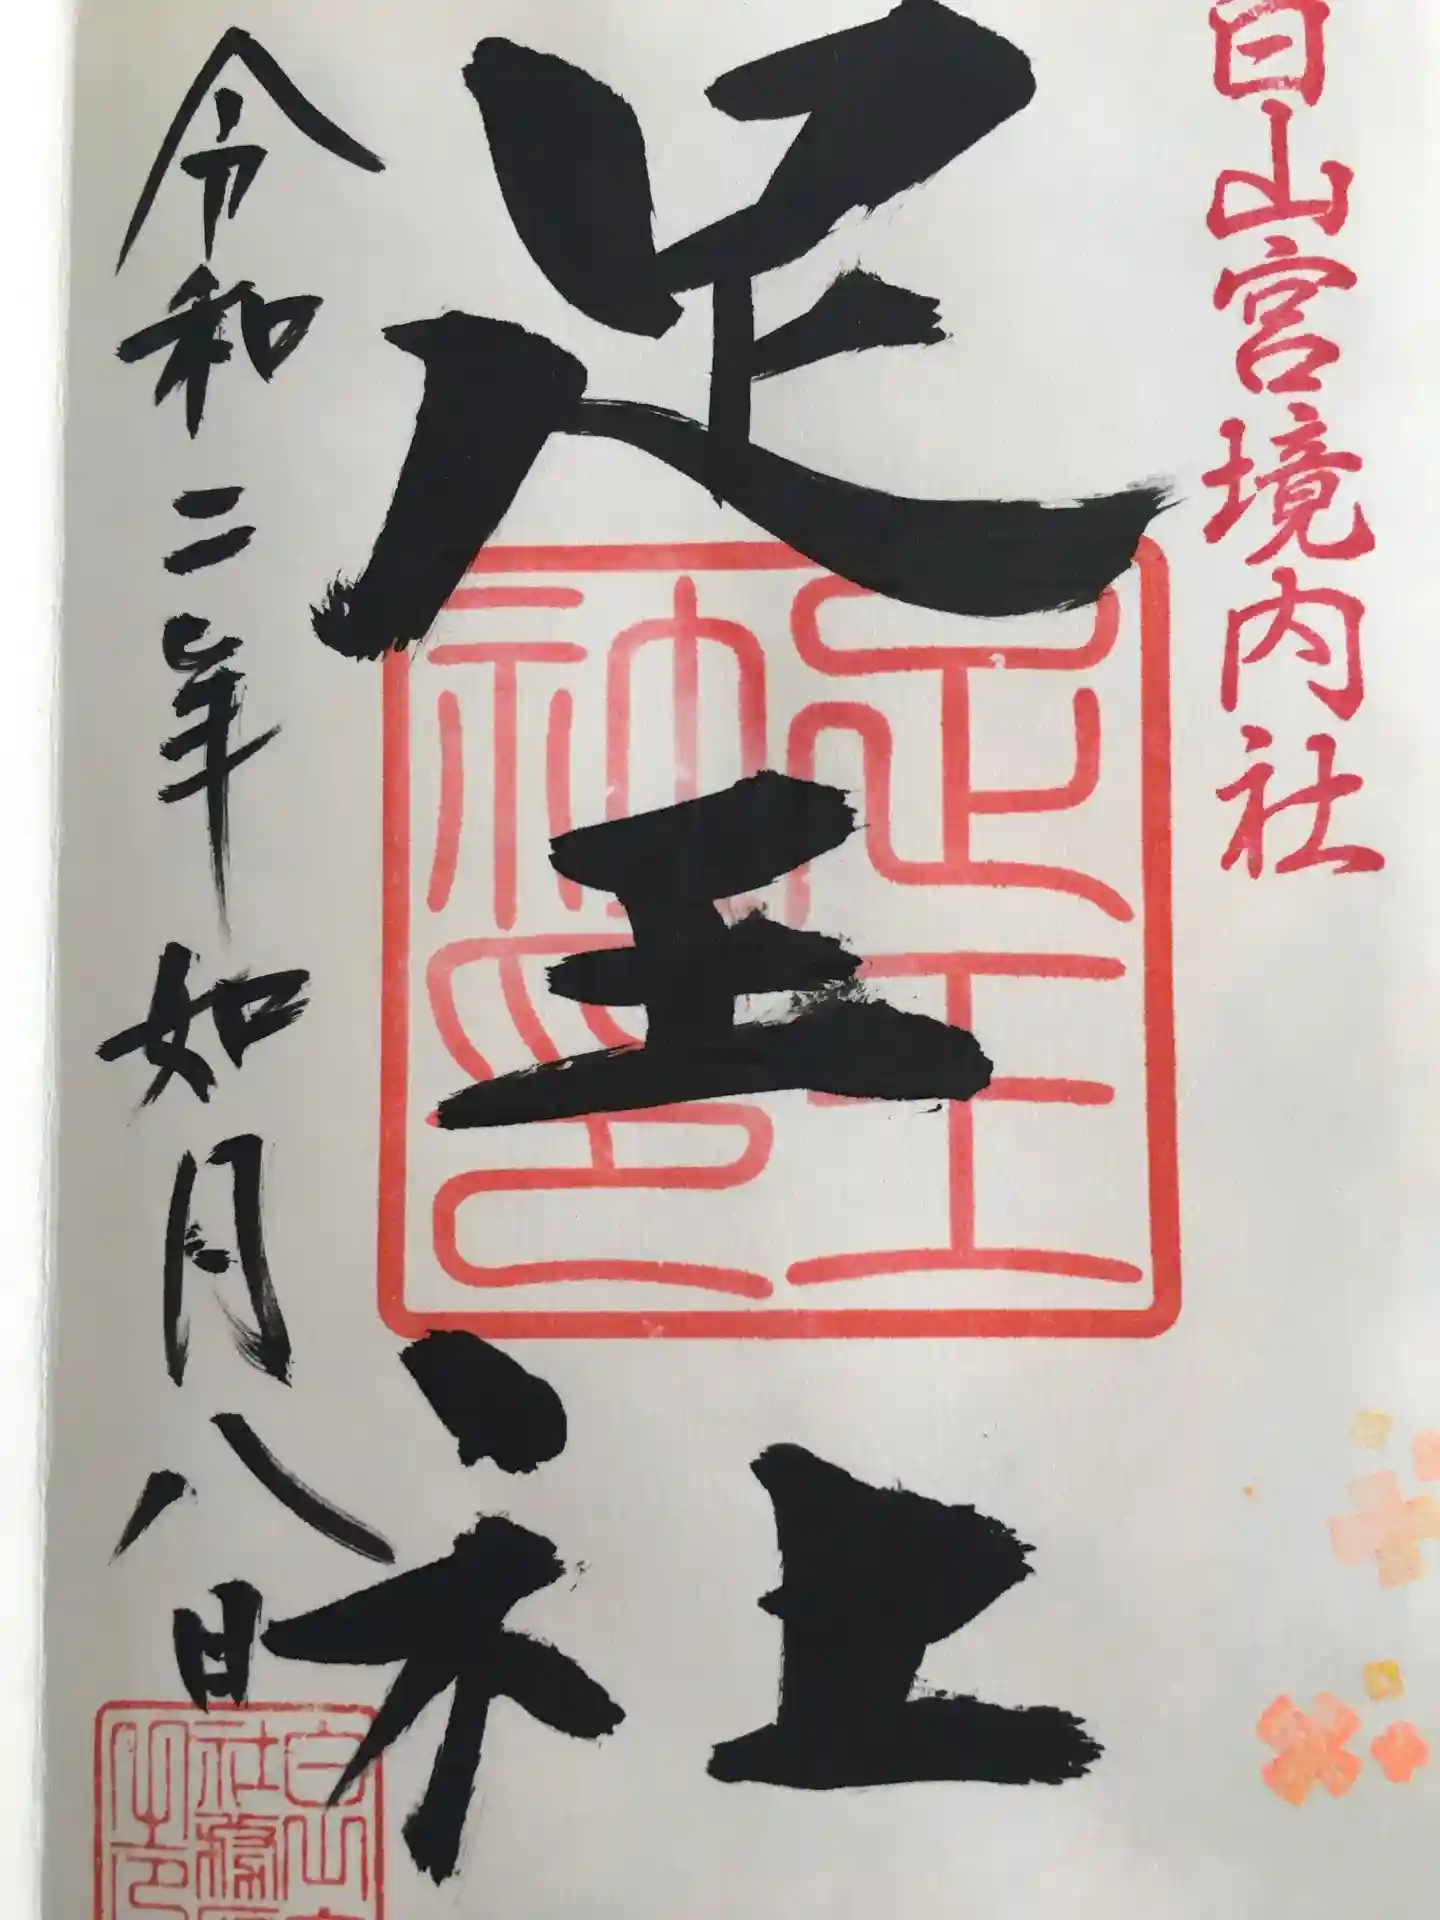 白山宮境内社
足王社
足王
神印
令和二年如月八日
白山
社務
之印